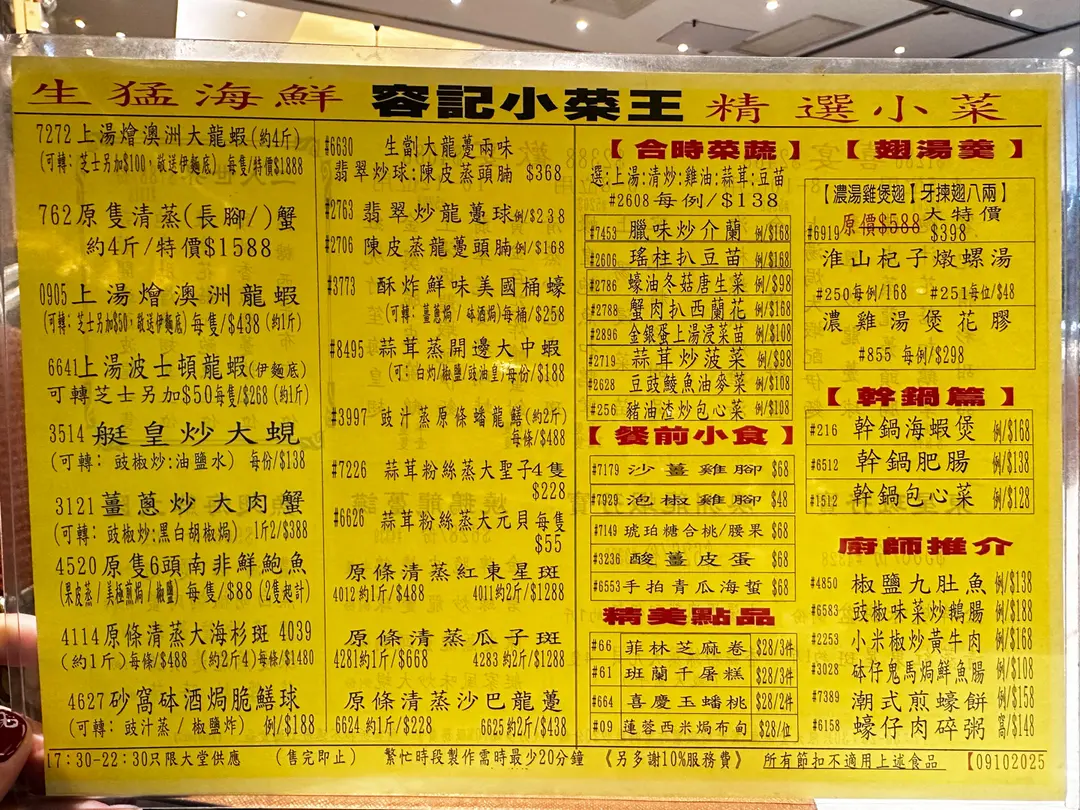 生猛海鮮 容記小菜王 精選小菜
7272上湯燴澳洲大龍蝦(約4斤)
(可轉:芝士另加$100,敬送伊麵底)每隻/特價$1888
762原隻清蒸(長腳/)蟹
約4斤/特價$1588
0905上湯燴澳洲龍蝦
(可轉:芝士另加$50,敬送伊麵底)每隻/$438(約1斤)
6641上湯波士頓龍蝦(伊麵底)
可轉芝士另加$50每隻/$268(約1斤)
3514艇皇炒大蜆
(可轉:豉椒炒:油鹽水) 每份/$138
3121薑蔥炒大肉蟹
(可轉:豉椒炒:黑白胡椒焗) 1斤2/$388
4520原隻6頭南非鮮鮑魚
(果皮蒸/美極煎焗/椒鹽)每隻/$88(2隻起計)
4114原條清蒸大海杉斑 4039
(約1斤)每條/$488 (約2斤4)每條/$1480
4627砂窩砵酒焗脆鱔球
(可轉:豉汁蒸/椒鹽炸) 例/$188
#6630 生劏大龍躉兩味
翡翠炒球:陳皮蒸頭腩 $368
#2763 翡翠炒龍躉球例/$238
#2706 陳皮蒸龍躉頭腩例/$168
#3773 酥炸鮮味美國桶蠔
(可轉:薑蔥焗/砵酒焗)每桶/$258
#8495 蒜茸蒸開邊大中蝦
(可:白灼/椒鹽/豉油皇/每份/$188
#3997 豉汁蒸原條蟠龍鱔(約2斤)
每條/$488
#7226 蒜茸粉絲蒸大聖子4隻
$228
#6626 蒜茸粉絲蒸大元貝每隻
$55
原條清蒸紅東星斑
4012約1斤/$488 4011約2斤/$1288
原條清蒸瓜子斑
4281約1斤/$668 4283約2斤/$1288
原條清蒸沙巴龍躉
6624約1斤/$228 6625約2斤/$438
【合時菜蔬】
選:上湯:清炒:雞油:蒜茸:豆苗
#2608每例/$138
#7453 臘味炒介蘭 例/$168
#2606 瑤柱扒豆苗 例/$168
#2786 蠔油冬菇唐生菜 例/$98
#2788 蟹肉扒西蘭花 例/$168
#2896 金銀蛋上湯浸菜苗 例/$108
#2719 蒜茸炒菠菜 例/$98
#2628 豆豉鯪魚油麥菜 例/$108
#256 豬油渣炒包心菜 例/$108
【餐前小食】
#7179 沙薑雞腳 $68
#7929 泡椒雞腳 $48
#7149 琥珀糖合桃/腰果 $68
#3236 酸薑皮蛋 $68
#6553 手拍青瓜海蜇 $68
精美點品
#66 菲林芝麻卷 $28/3件
#61 班蘭千層糕 $28/3件
#664 喜慶玉蟠桃 $28/2件
#09 蓮蓉西米焗布甸 $28/位
【翅湯羹】
【濃湯雞煲翅】牙揀翅八兩】
#6919原價$588大特價
$398
淮山杞子燉螺湯
#250每例/168 #251每位/$48
濃雞湯煲花膠
#855 每例/$298
【幹鍋篇】
#216 幹鍋海蝦煲 例/$168
#6512 幹鍋肥腸 例/$138
#1512 幹鍋包心菜 例/$128
廚師推介
#4850 椒鹽九肚魚 例/$138
#6583 豉椒味菜炒鵝腸 例/$188
#2253 小米椒炒黃牛肉 例/$168
#3028 砵仔鬼馬焗鮮魚腸 例/$108
#7389 潮式煎蠔餅 例/$158
#6158 蠔仔肉碎粥 窩/$148
17:30-22:30只限大堂供應 (售完即止) 繁忙時段製作需時最少20分鐘 《另多謝10%服務費》 所有節扣不適用上述食品 【09102025